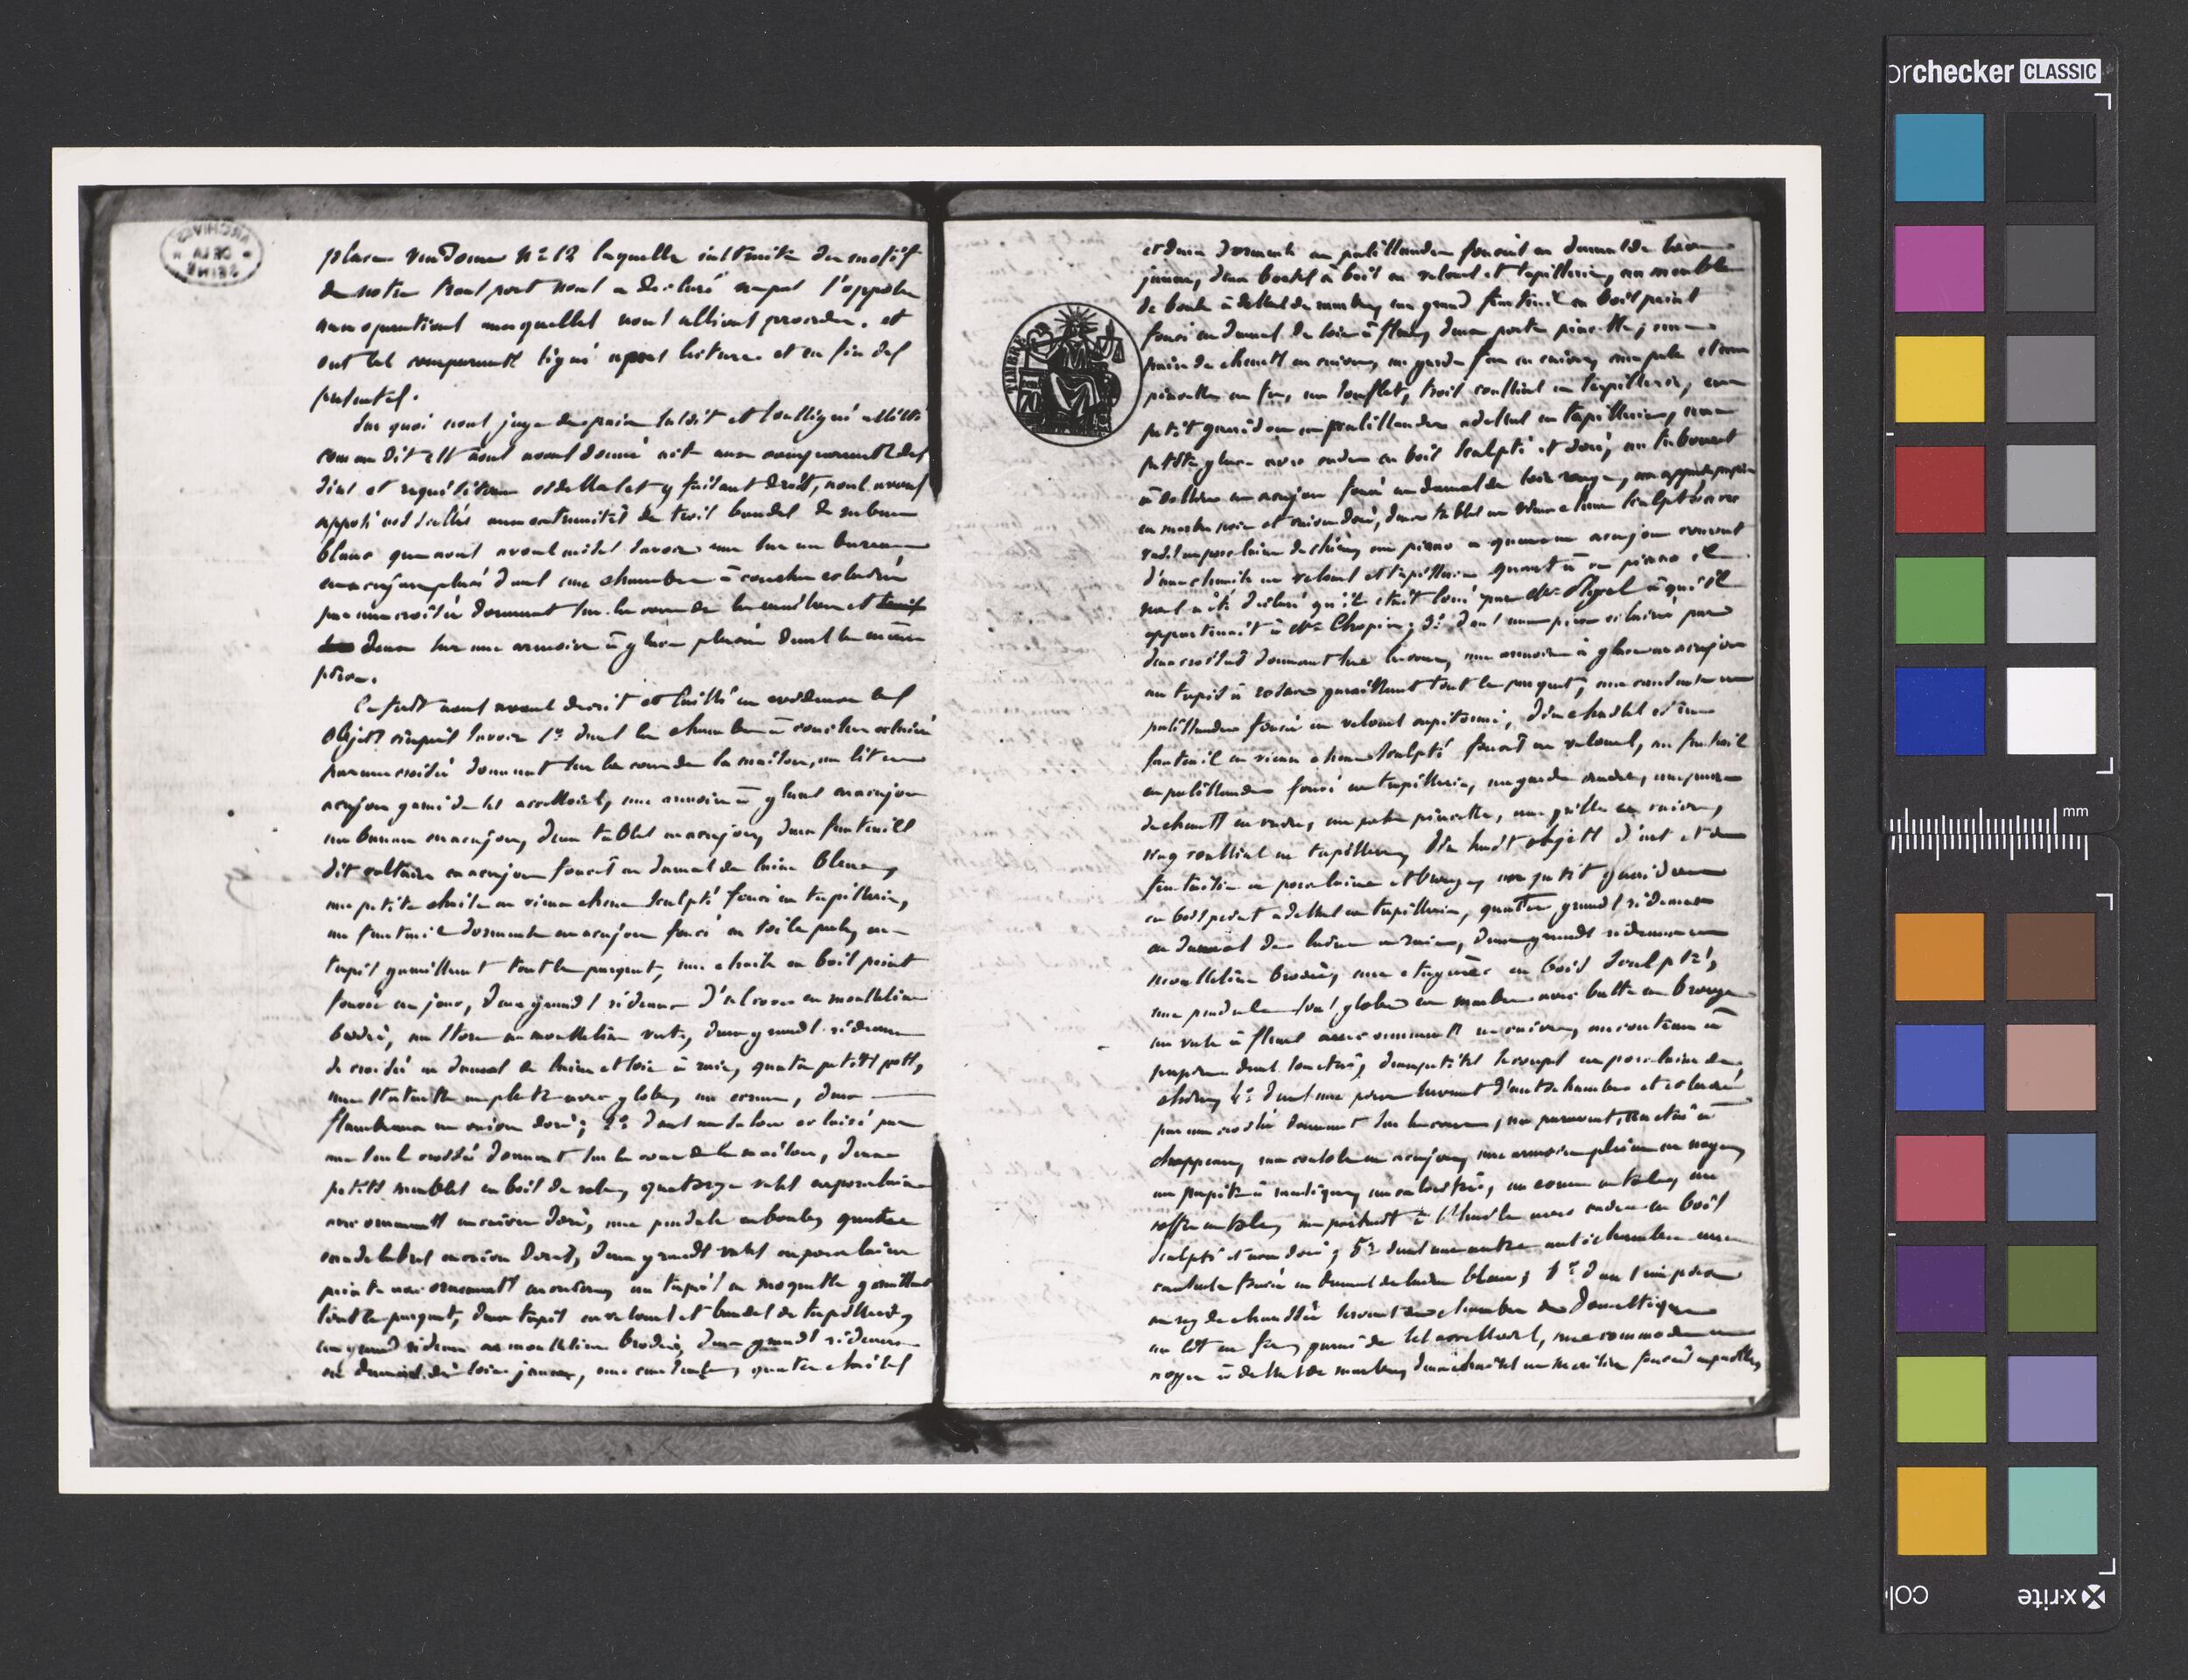 ARCHIVES
DE LA
SEINE
place vendome No 12 laquelle instruite du motif
de notre transport nous a déclaré ne pas s'opposer
aux opérations auxquelles nous allions proceder. et
ont les comparants signé apres lecture et en fin des
presentes.
Sur quoi nous juge de paix susdit et soussigné assisté
comme dit est nous avons donné acte aux comparants des
dires et requisitions et de l'autre y faisant droit, nous avons
apposé nos scellés aux extremités de trois bandes de ruban
blanc que nous avons mises savoir une sur un bureau
en acajou placé dans une chambre à coucher eclairée
par une croisée donnant sur la cour de la maison et
deux sur une armoire à glace placée dans la même
pièce.
Ce fait nous avons decrit et laissé en evidence les
objets cinquit savoir 1o dans la chambre à coucher eclairée
par une croisée donnant sur la cour de la maison, un lit en
acajou garni de ses accessoires, une armoire à glace en acajou
un bureau en acajou, deux tables en acajou, deux fauteuils
dit voltaire en acajou foncés en damas de laine bleue,
une petite chaise en vieux chene sculpté foncé en tapisserie,
un fauteuil dormeuse en acajou foncé en toile perse, un
tapis garnissant tout le parquet, une chaise en bois peint
foncée en jonc, deux grands rideaux d'alcove en mousseline
brodée, un store en mousseline verte, deux grands rideaux
de croisée en damas de laine et soie à raies, quatre petits pots,
une statuette en platre avec globe, un ecran, deux
flambeaux en cuivre doré; 2o dans un salon eclairé par
une seule croisée donnant sur la cour de la maison, deux
petits meubles en bois de rose, quatorze vases en porcelaine
avec ornements en cuivre doré, une pendule en boule, quatre
candelabres en cuivre dorés, deux grands vases en porcelaine
peinte avec ornements en cuivre, un tapis en moquette garnissant
tout le parquet, deux tapis en velours et bandes de tapisserie,
un grand rideau en mousseline brodée, deux grands rideaux
en damas de soie jaune, une causeuse, quatre chaises
et deux dormeuses en palissandre foncées en damas de soie
jaune, deux poufs à bois en velours et tapisserie, un meuble
de boule à dessus de marbre, un grand fauteuil en bois peint
foncé en damas de soie à fleurs, deux porte pincettes, une
paire de chenets en cuivre, un garde feu en cuivre, une pelle et une
pincette en fer, un soufflet, trois coussins en tapisserie, un
petit gueridon en palissandre a dessus en tapisserie, une
petite glace avec cadre en bois sculpté et doré, un tabouret
à dossier en acajou foncé en damas de soie rouge, un appuie papier
en marbre noir et cuivre doré, deux tables en vieux chene sculpté avec
vases en porcelaine de chine, un piano a queue en acajou couvert
d'une chemise en velours et tapisserie quant à ce piano il
nous a été déclaré qu'il était loué par Mr. Pleyel à qui il
appartenait à Mr. Chopin; 3o dans une pièce eclairée par
deux croisées donnant sur la cour, une armoire à glace en acajou
un tapis à rosace garnissant tout le parquet, une causeuse en
palissandre foncée en velours capitonné, deux chaises et un
fauteuil en vieux chene sculpté foncés en velours, un fauteuil
en palissandre foncé en tapisserie, un garde cendre, une paire
de chenets en cuivre, une pelle pincette, une grille en cuivre,
cinq coussins en tapisserie, dix huit objets d'art et de
fantaisie en porcelaine et bronze, un petit gueridon
en bois peint a dessus en tapisserie, quatre grands rideaux
en damas de laine a raies, deux grands rideaux en
mousseline brodée, une etagère en bois sculpté,
une pendule sous globe en marbre avec buste en bronze
un vase à fleurs avec ornements en cuivre, un couteau à
papier dans son etui, deux petites soucoupes en porcelaine de
chine, 4o dans une pièce servant d'antichambre et eclairée
par une croisée donnant sur la cour, un paravent, un etui à
chapeau, une console en acajou, une armoire pleine en noyer,
un pupitre à musique, un calorifère, un coucou en tole, un
coffre en tole, un portrait à l'huile avec cadre en bois
sculpté et non doré; 5o dans une autre antichambre une
causeuse foncée en damas de laine bleue; 6o dans une pièce
au rez de chaussée servant de chambre de domestique
un lit en fer garni de ses accessoires, une commode en
noyer à dessus de marbre, deux chaises en merisier foncées en paille,